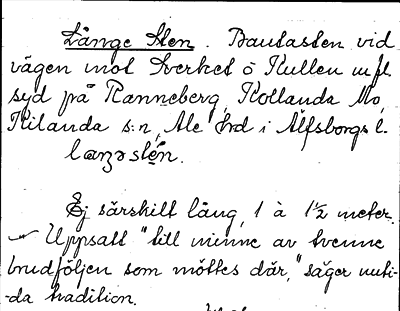 Långe Sten. Bautasten vid
vägen mot Sverket o Kullen m fl
syd på Ranneberg, Kollanda Mo,
Kilanda s:n, Ale hrd i Älfsborgs l.
Ej särskilt lång, 1 à 1½ meter.
Uppsatt "till minne av tvenne
brudföljen som möttes där," säger nuti-
-da tradition.